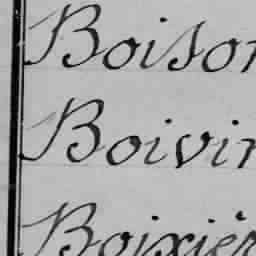 Boison
Boivin
Boixièr